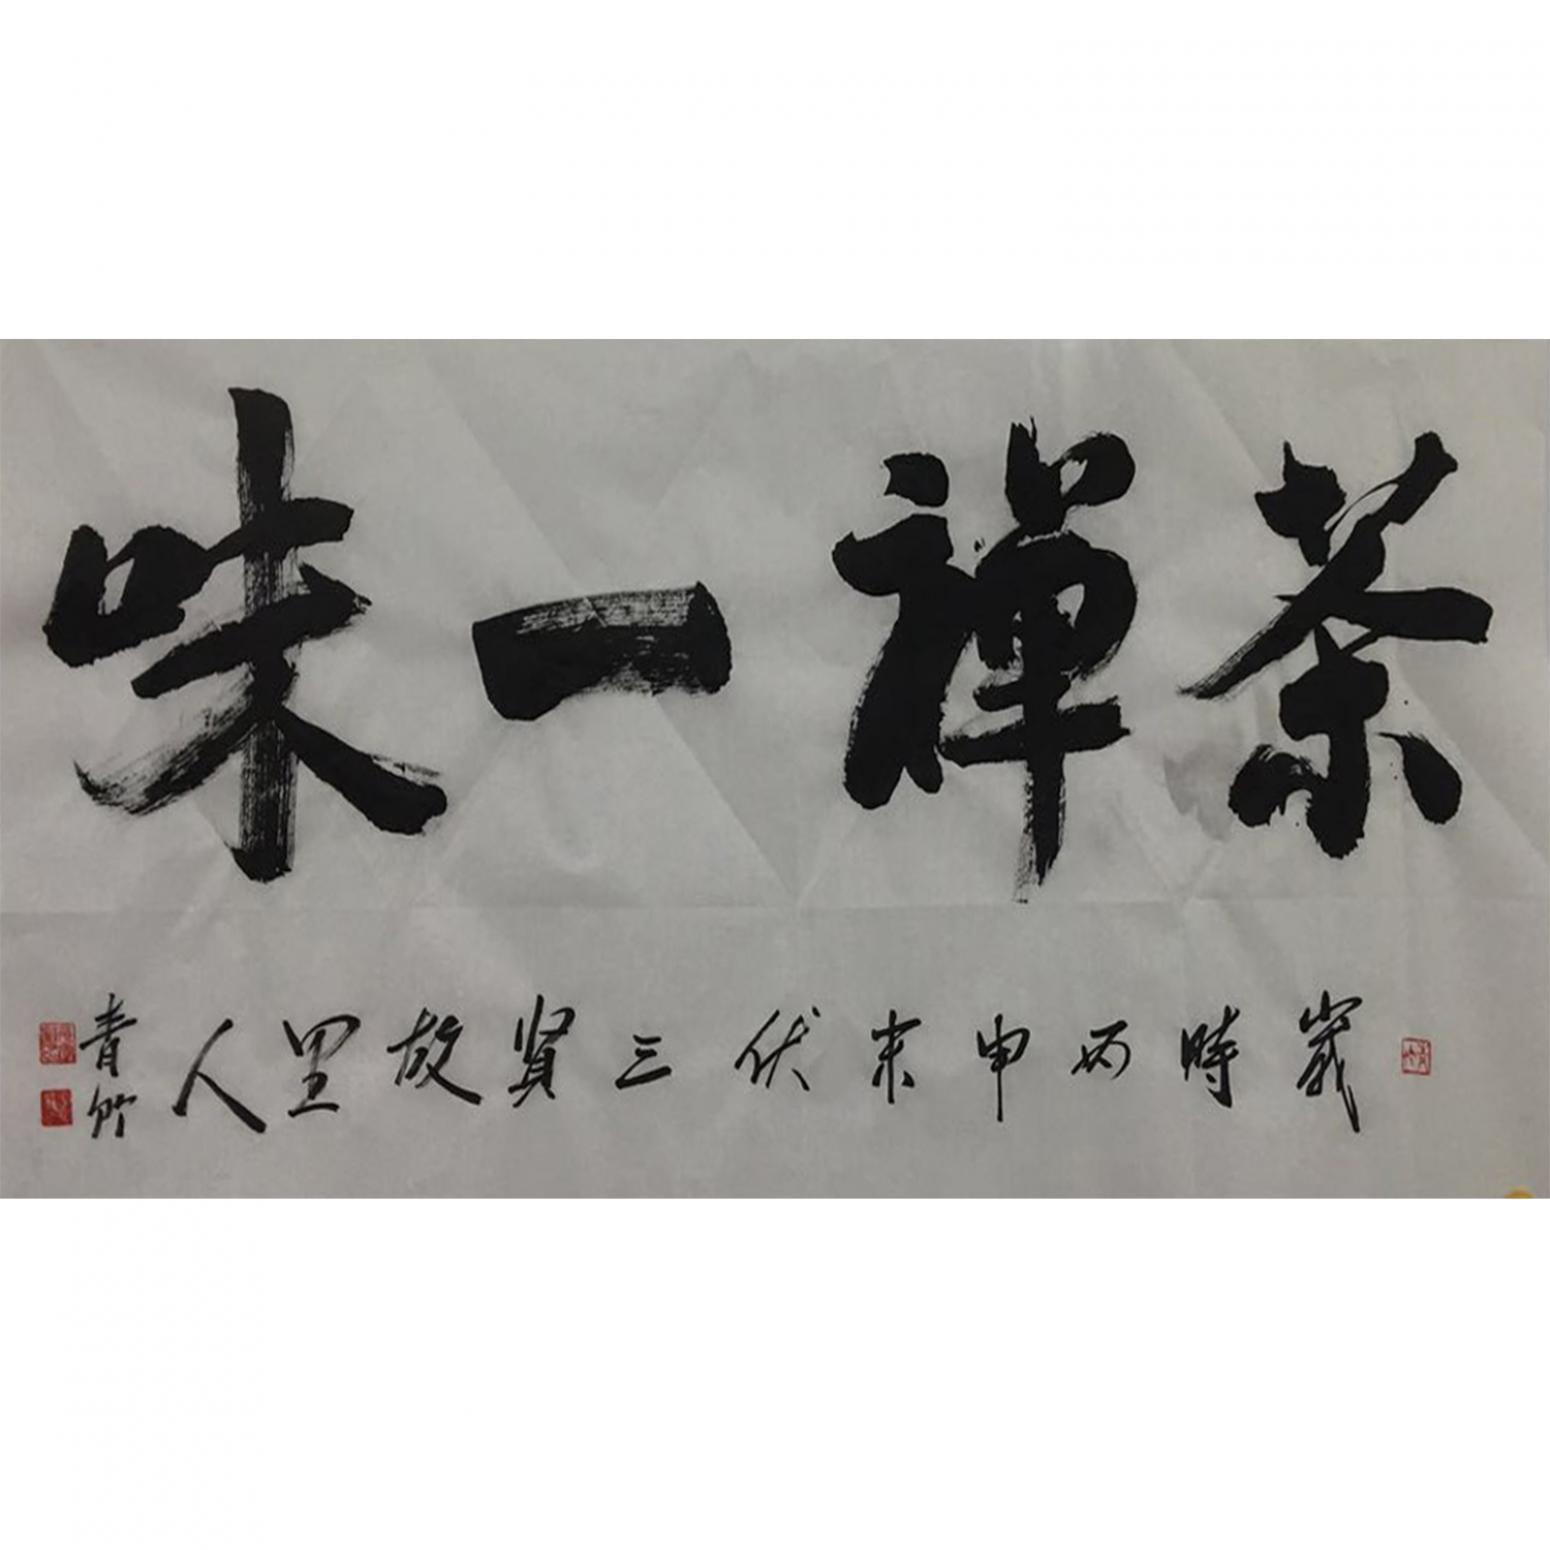 茶禪一味
歲時丙申末伏三賢故里人
青竹